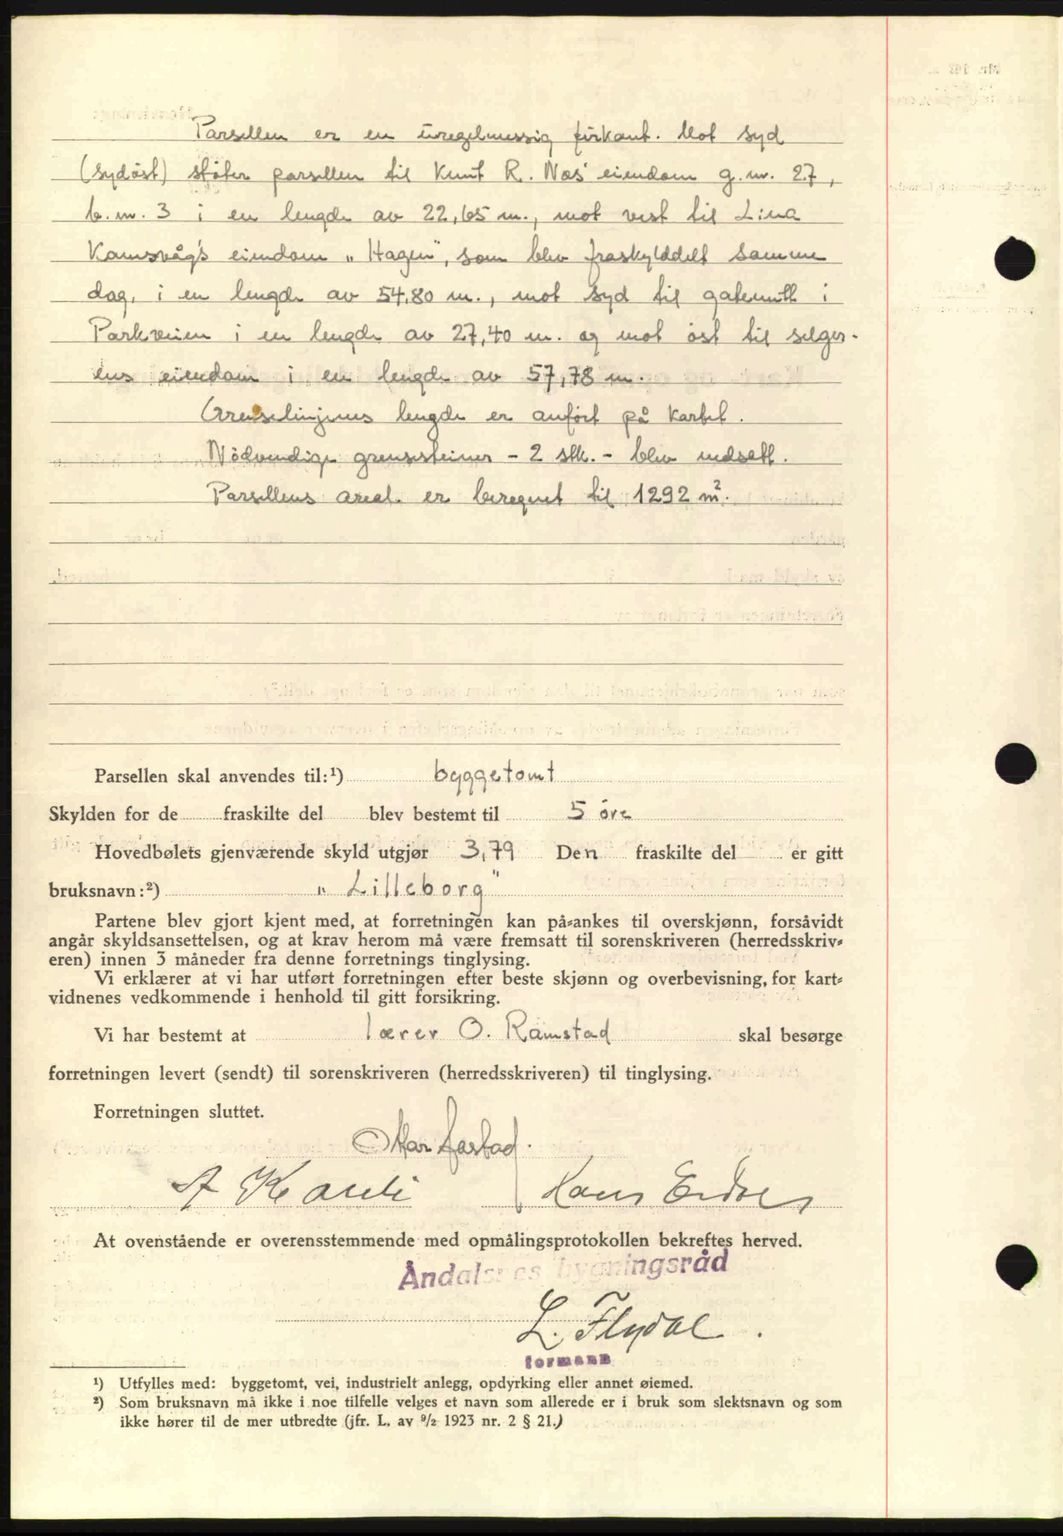 Parsellen er en uregelmessig firkant. Mot syd
(sydøst) støter parsellen til Knut R. Næs' eiendom g.nr. 27,
b.nr. 3 i en lengde av 22,65 m., mot vest til Lina
Kamsvåg's eiendom „Hagen", som blev fraskylddelt samme
dag, i en lengde av 54,80 m., mot syd til gatemidt i
Parkveien i en lengde av 27,40 m. og mot øst til selger-
ens eiendom i en lengde av 57,78 m.
Grenselinjenes lengde er anført på kartet.
Nödvendige grensesteiner - 2 stk. - blev nedsatt.
Parsellens areal er beregnet til 1292 m².
Parsellen skal anvendes til:¹) byggetomt
Skylden for de fraskilte del blev bestemt til 5 öre
Hovedbølets gjenværende skyld utgjør 3,79 Den fraskilte del er gitt
bruksnavn:²) „Lilleborg"
Partene blev gjort kjent med, at forretningen kan på-ankes til overskjønn, forsåvidt
angår skyldsansettelsen, og at krav herom må være fremsatt til sorenskriveren (herredsskriv-
eren) innen 3 måneder fra denne forretnings tinglysing.
Vi erklærer at vi har utført forretningen efter beste skjønn og overbevisning, for kart-
vidnenes vedkommende i henhold til gitt forsikring.
Vi har bestemt at lærer O. Ramstad skal besørge
forretningen levert (sendt) til sorenskriveren (herredsskriveren) til tinglysing.
Forretningen sluttet.
A Kavli Hans
At ovenstående er overensstemmende med opmålingsprotokollen bekreftes herved.
Åndalsnes bygningsråd
L. Flydal.
formann
¹) Utfylles med: byggetomt, vei, industrielt anlegg, opdyrking eller annet øiemed.
²) Som bruksnavn må ikke i noe tilfelle velges et navn som allerede er i bruk som slektsnavn og som
ikke hører til de mer utbredte (jfr. L. av 9/2 1923 nr. 2 § 21.)